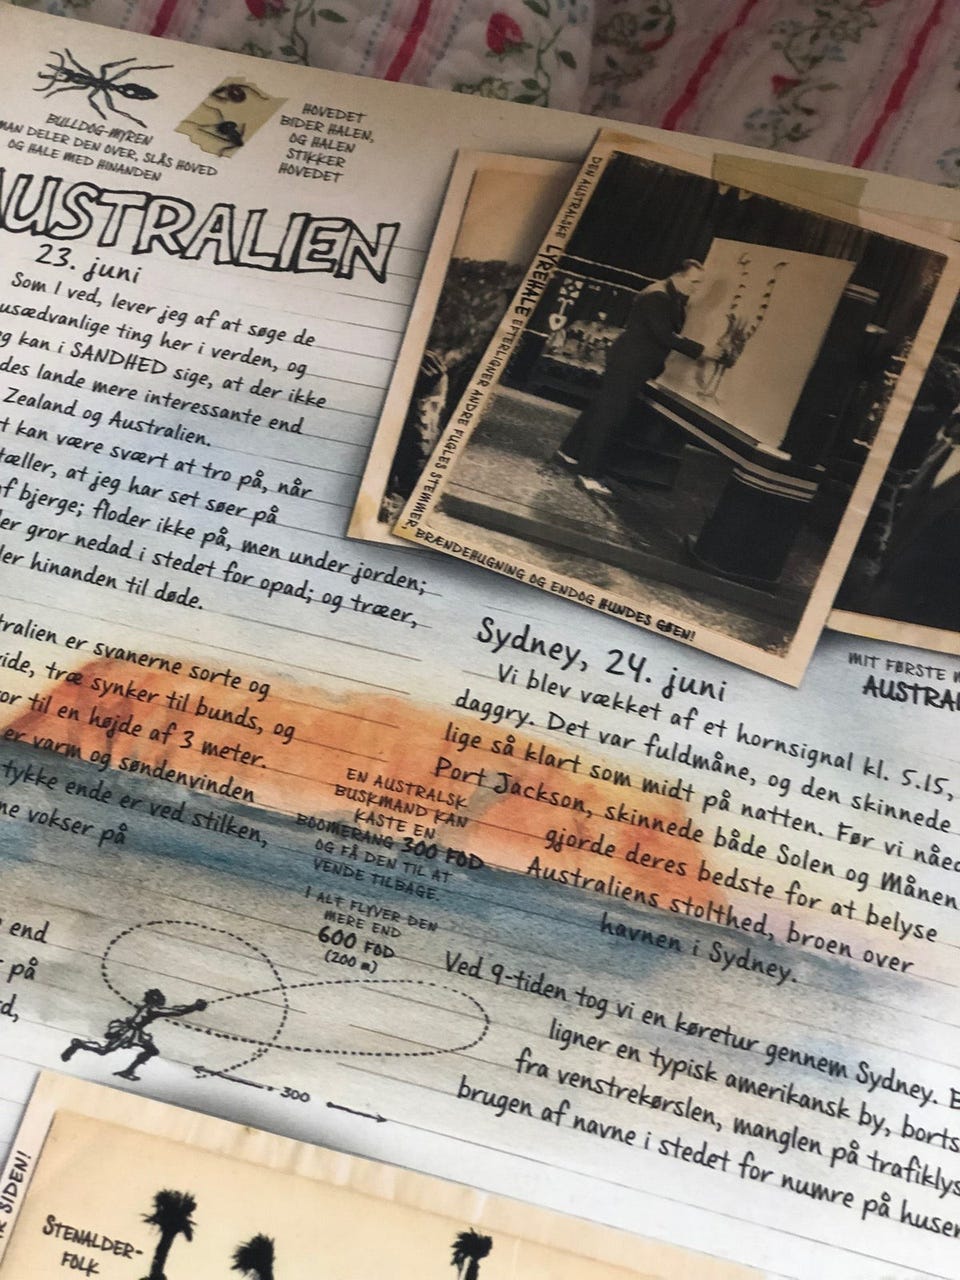 BULLDOG-MYREN
MAN DELER DEN OVER, SLÅS HOVED
OG HALE MED HINANDEN
HOVEDET
BIDER HALEN,
OG HALEN
STIKKER
HOVEDET
AUSTRALIEN
23. juni
Som I ved, lever jeg af at søge de
usædvanlige ting her i verden, og
kan i SANDHED sige, at der ikke
des lande mere interessante end
Zealand og Australien.
t kan være svært at tro på, når
tæller, at jeg har set søer på
af bjerge; floder ikke på, men under jorden;
er gror nedad i stedet for opad; og træer,
ler hinanden til døde.
tralien er svanerne sorte og
vide, træ synker til bunds, og
or til en højde af 3 meter.
er varm og søndenvinden
tykke ende er ved stilken,
ne vokser på
end
på
d,
DEN AUSTRALSKE LYREHALE EFTERLIGNER ANDRE FUGLES STEMMER,
BRÆNDEHUGNING OG ENDOG HUNDES GØEN!
MIT FØRSTE
AUSTRAL
Sydney, 24. juni
Vi blev vækket af et hornsignal kl. 5.15,
daggry. Det var fuldmåne, og den skinnede
lige så klart som midt på natten. Før vi nåed
Port Jackson, skinnede både Solen og Månen
gjorde deres bedste for at belyse
Australiens stolthed, broen over
havnen i Sydney.
Ved 9-tiden tog vi en køretur gennem Sydney.
ligner en typisk amerikansk by, borts
fra venstrekørslen, manglen på trafiklys
brugen af navne i stedet for numre på husen
EN AUSTRALSK
BUSKMAND KAN
KASTE EN
BOOMERANG 300 FOD
OG FÅ DEN TIL AT
VENDE TILBAGE.
I ALT FLYVER DEN
MERE END
600 FOD
(200 m)
300
SIDEN!
STENALDER-
FOLK